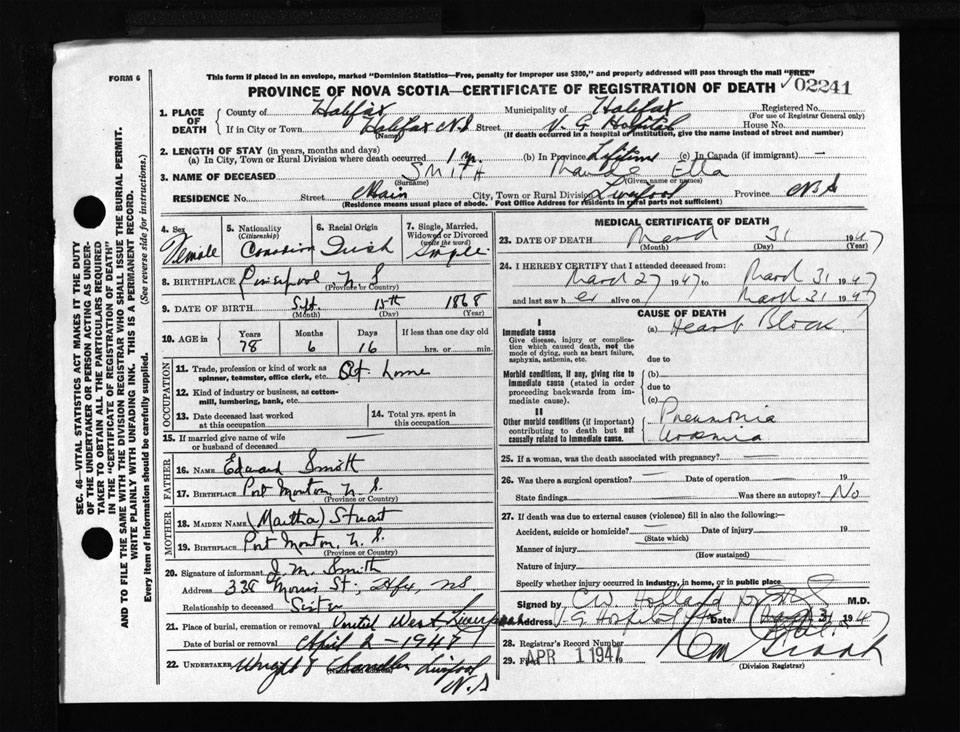 FORM 6
This form if placed in an envelope, marked "Dominion Statistics—Free, penalty for improper use $300," and properly addressed will pass through the mail "FREE"
PROVINCE OF NOVA SCOTIA—CERTIFICATE OF REGISTRATION OF DEATH
02241
1. PLACE OF DEATH
County of Halifax Municipality of Halifax Registered No.
(For use of Registrar General only)
If in City or Town Halifax N.S. Street V. G. Hospital House No.
(Name) (If death occurred in a hospital or institution, give the name instead of street and number)
2. LENGTH OF STAY (in years, months and days)
(a) In City, Town or Rural Division where death occurred 1 (b) In Province Lifetime (c) In Canada (if immigrant) —
3. NAME OF DECEASED SMITH Maude Ella
(Surname) (Given name or names)
RESIDENCE No. Street Main City, Town or Rural Division Liverpool Province N.S.
(Residence means usual place of abode. Post Office Address for residents in rural parts not sufficient)
4. Sex
Female
5. Nationality
(Citizenship)
Canadian
6. Racial Origin
Irish
7. Single, Married, Widowed or Divorced
(write the word)
Single
8. BIRTHPLACE Liverpool N S
(Province or Country)
9. DATE OF BIRTH Sept. 15th 1868
(Month) (Day) (Year)
10. AGE in Years Months Days If less than one day old
78 6 16 hrs. or min.
OCCUPATION
11. Trade, profession or kind of work as spinner, teamster, office clerk, etc. At home
12. Kind of industry or business, as cotton-mill, lumbering, bank, etc.
13. Date deceased last worked at this occupation
14. Total yrs. spent in this occupation
15. If married give name of wife or husband of deceased —
FATHER
16. NAME Edward Smith
17. BIRTHPLACE Port Mouton, N. S.
(Province or Country)
MOTHER
18. MAIDEN NAME (Martha) Stuart
19. BIRTHPLACE Port Mouton, N. S.
(Province or Country)
20. Signature of informant J. M. Smith
Address 338 Morris St; Hfx, NS.
Relationship to deceased Sister
21. Place of burial, cremation or removal United West Liverpool
Date of burial or removal April 2 - 1947
22. UNDERTAKER Chandler Liverpool
(Name and address)
N.S
MEDICAL CERTIFICATE OF DEATH
23. DATE OF DEATH March 31 1947
(Month) (Day) (Year)
24. I HEREBY CERTIFY that I attended deceased from:
March 27 1947 to March 31 1947
and last saw her alive on March 31 1947
CAUSE OF DEATH
I
Immediate cause
Give disease, injury or complication which caused death, not the mode of dying, such as heart failure, asphyxia, asthenia, etc.
(a) Heart Block.
due to
Morbid conditions, if any, giving rise to immediate cause (stated in order proceeding backwards from immediate cause).
(b)
due to
(c)
II
Other morbid conditions (if important) contributing to death but not causally related to immediate cause.
Pneumonia
Uremia
25. If a woman, was the death associated with pregnancy? —
26. Was there a surgical operation? — Date of operation — 19
State findings Was there an autopsy? No
27. If death was due to external causes (violence) fill in also the following:—
Accident, suicide or homicide? — Date of injury 19
(State which)
Manner of injury
(How sustained)
Nature of injury
Specify whether injury occurred in industry, in home, or in public place
Signed by C.W. Holland M.D.
Address V. G. Hospital Date 31 1947
28. Registrar's Record Number
29. Filed APR 1 1947
(Division Registrar)
SEC. 46—VITAL STATISTICS ACT MAKES IT THE DUTY OF THE UNDERTAKER OR PERSON ACTING AS UNDERTAKER TO OBTAIN ALL THE PARTICULARS REQUIRED IN THE "CERTIFICATE OF REGISTRATION OF DEATH" AND TO FILE THE SAME WITH THE DIVISION REGISTRAR WHO SHALL ISSUE THE BURIAL PERMIT.
WRITE PLAINLY WITH UNFADING INK. THIS IS A PERMANENT RECORD.
Every item of information should be carefully supplied. (See reverse side for instructions.)